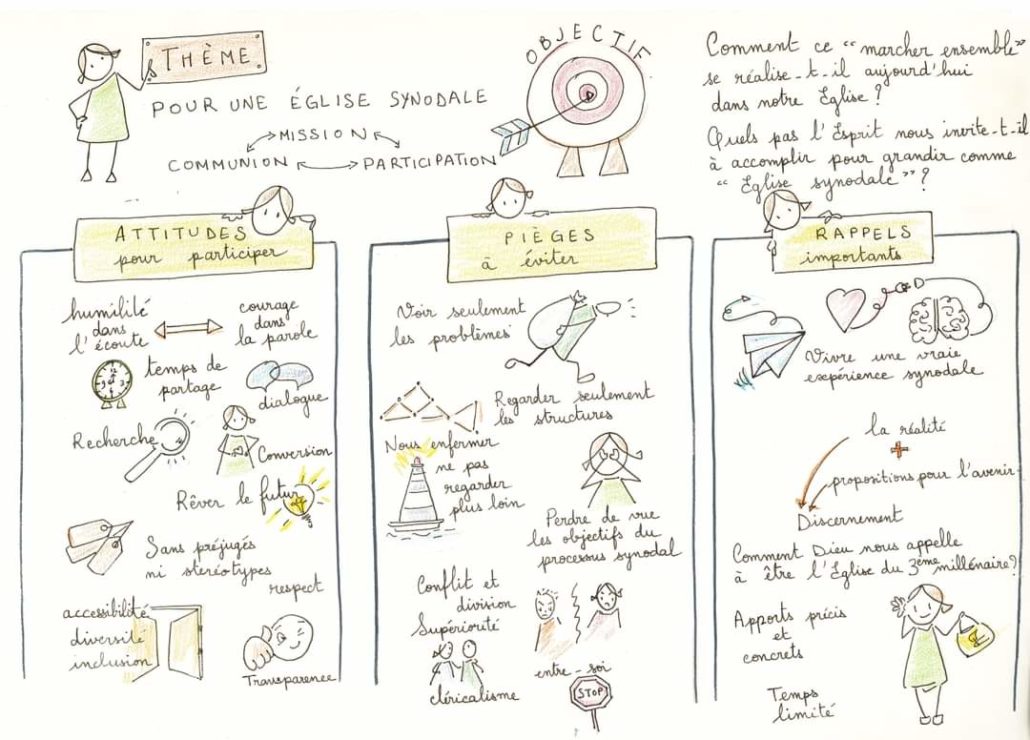 THÈME
POUR UNE ÉGLISE SYNODALE
MISSION
COMMUNION
PARTICIPATION
OBJECTIF
Comment ce "marcher ensemble"
se réalise-t-il aujourd'hui
dans notre Église ?
Quels pas l'Esprit nous invite-t-il
à accomplir pour grandir comme
"Église synodale" ?
ATTITUDES
pour participer
humilité
dans
l'écoute
courage
dans
la parole
temps de
partage
dialogue
Recherche
Conversion
Rêver le futur
Sans préjugés
ni stéréotypes
respect
accessibilité
diversité
inclusion
Transparence
PIÈGES
à éviter
Voir seulement
les problèmes
Regarder seulement
les structures
Nous enfermer
ne pas
regarder
plus loin
Perdre de vue
les objectifs du
processus synodal
Conflit et
division
Supériorité
cléricalisme
entre-soi
STOP
RAPPELS
importants
Vivre une vraie
expérience synodale
la réalité
+
propositions pour l'avenir
Discernement
Comment Dieu nous appelle
à être l'Église du 3ème millénaire ?
Apports précis
et
concrets
Temps
limité